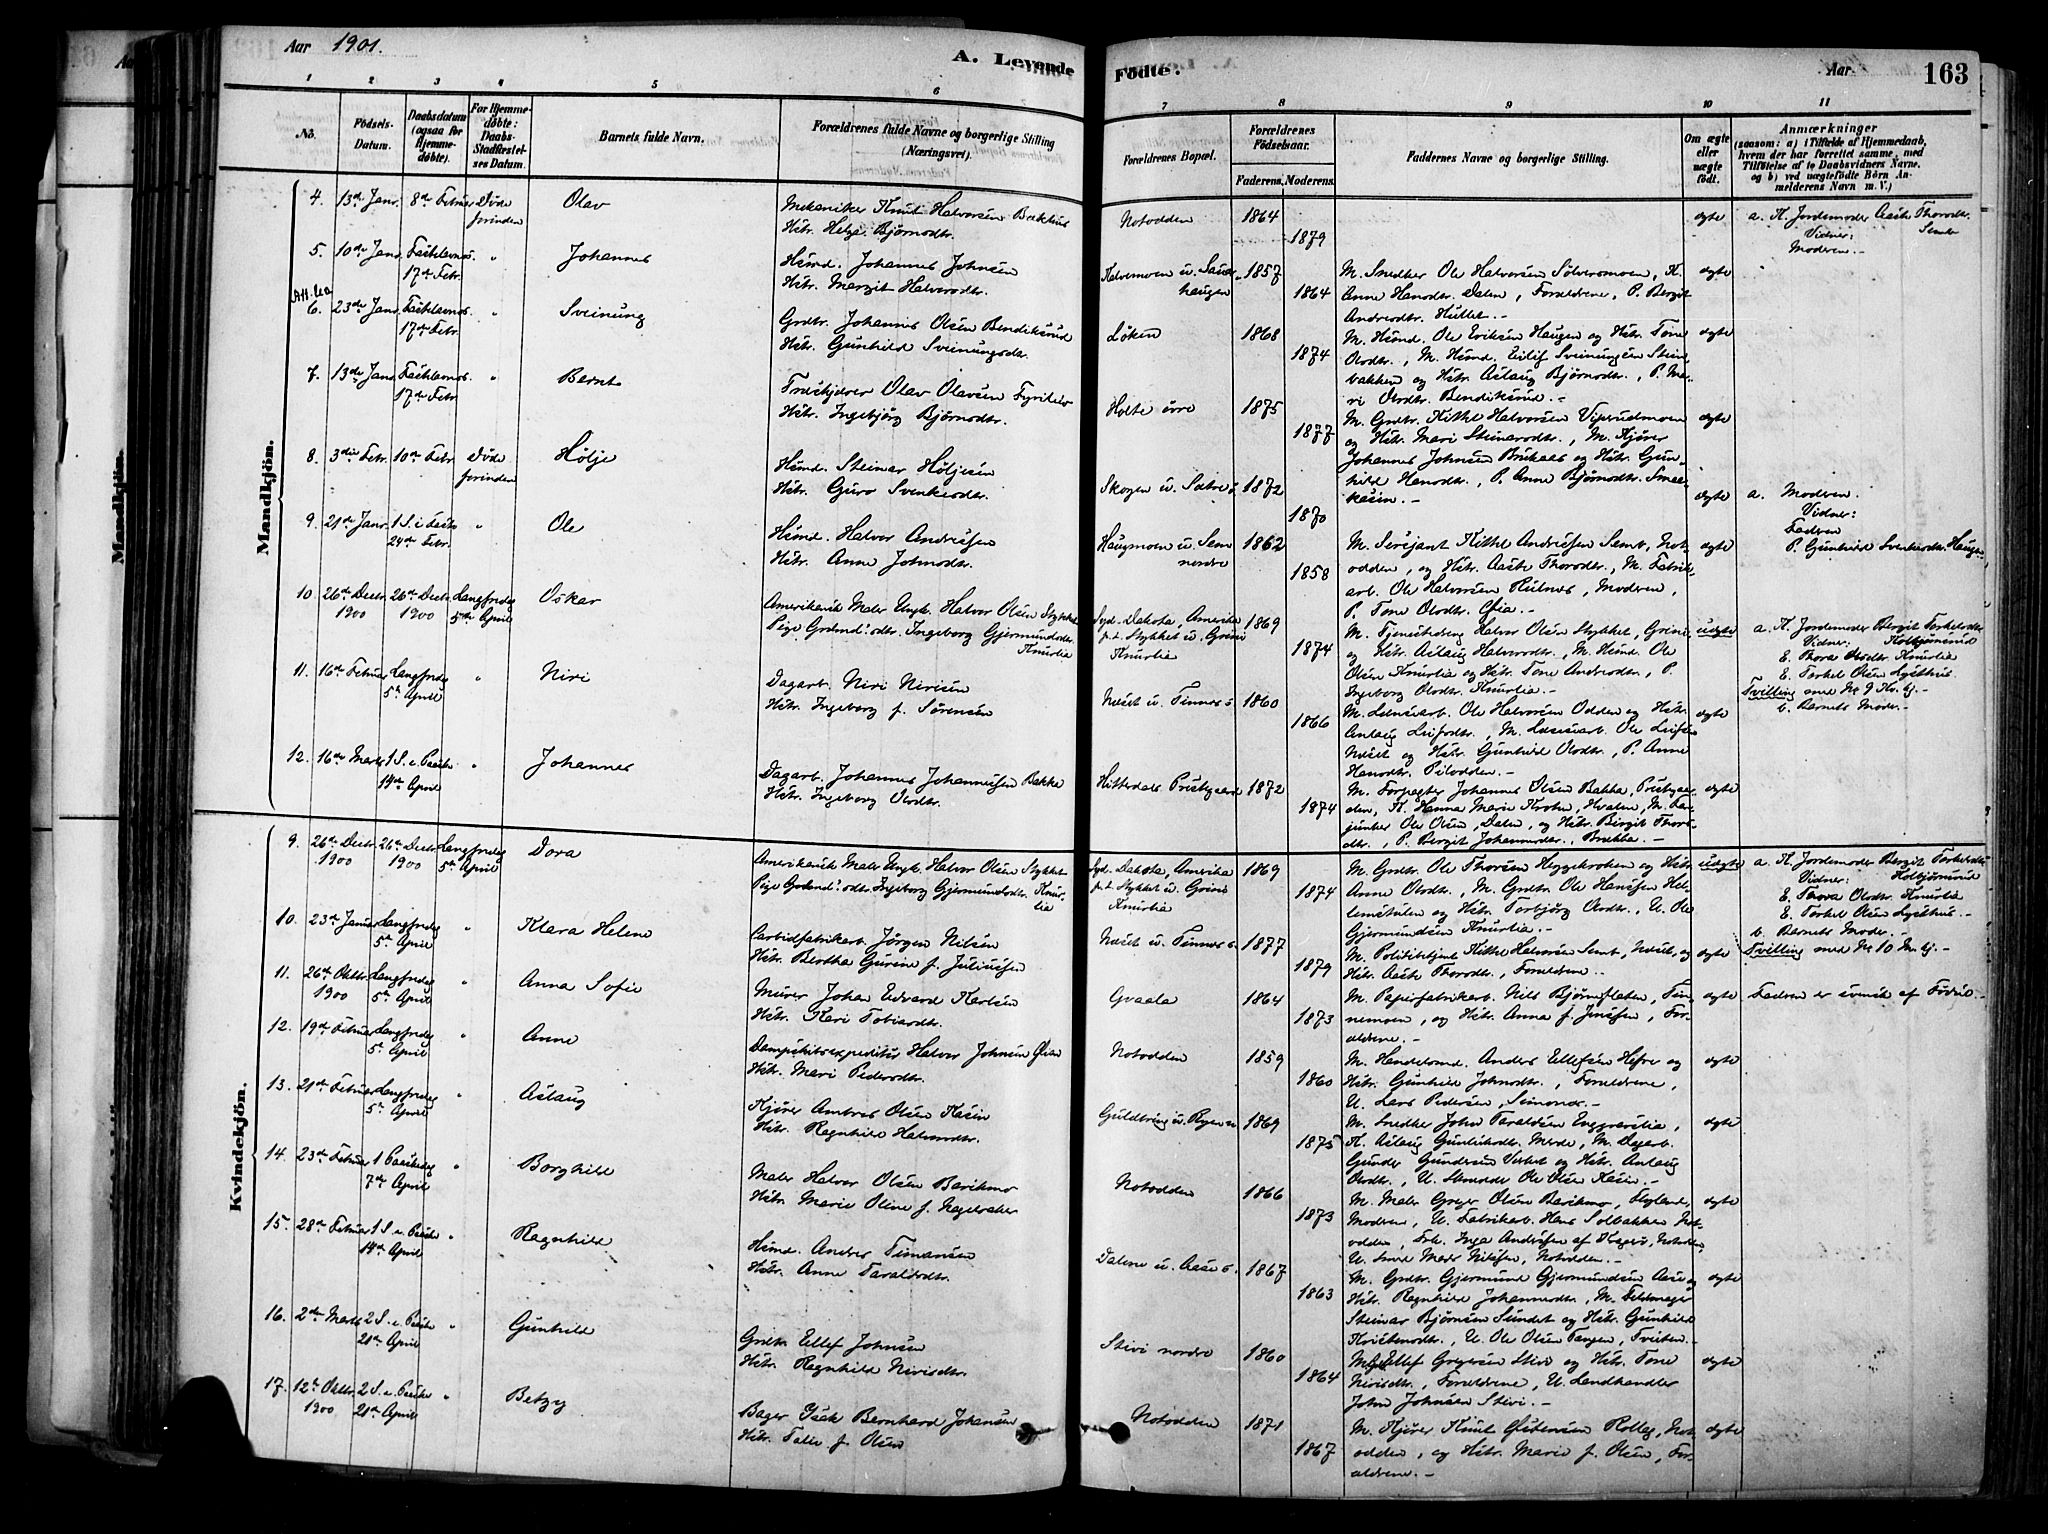 Aar 1901.
A. Levende Födte.
Aar
163
1 2 3 4 5 6 7 8 9 10 11
No.
Födsels-Datum.
Daabsdatum (ogsaa for Hjemme-døbte).
For Hjemme-døbte: Daabs-Stadfæstel-ses Datum.
Barnets fulde Navn.
Forældrenes fulde Navne og borgerlige Stilling (Næringsvei).
Forældrenes Bopæl.
Forældrenes Födselsaar.
Faderens. Moderens.
Faddernes Navne og borgerlige Stilling.
Om ægte eller uægte født.
Anmærkninger
(saasom: a) i Tilfælde af Hjemmedaab, hvem der har forrettet samme, med Tilføielse af to Daabsvidners Navne, og b) ved uægtefødte Børn An-melderens Navn m. V.)
Mandkjön.
4. 13de Janr. 8de Februar Døde forinden Olav
Mekaniker Knut Halvorsen Bakhus
Hstr. Helge Bjørnsdtr.
Notodden 1864 1879 ægte
a. K. Jordemoder Aaste Thorsdtr. Semb
Vidner:
Moderen. —
5. 10de Janr. Fastelavns. 17de Febr. " Johannes
Hsmd. Johannes Johnsen
Hstr. Margit Halvorsdtr.
1857 1864
M. Snedker Ole Halvorsen Sølversmoen, K.
Anne Hansdtr. Dalen, Forældrene, P. Bergit
Andersdtr. Hullet. —
ægte
6. 23de Janr. Fastelavns. 17de Febr. " Sveinung
Grdbr. Johannes Olsen Bendiksrud
Hstr. Gunhild Sveinungsdr.
Løken 1868 1874
M. Hsmd. Ole Eriksen Haugen og Hstr. Tone
Olsdtr., M. Hsmd. Eilif Sveinungsen Stein-
bakken og Hstr. Aslaug Bjørnsdtr., P. Ma-
ri Olsdtr. Bendiksrud. —
ægte
7. 13de Janr. Fastelavns. 17de Febr. " Bernt
Olav Olavsen
Hstr. Ingebjørg Bjørnsdtr.
Holte øvre 1875 1877
M. Grdbr. Kittil Halvorsen
og Hstr. Mari Steinarsdtr., M. Kjører
Johannes Johnsen og Hstr. Gun-
hild Hansdtr., P. Anne Bjørnsdtr.
ægte
8. 3die Febr. 10de Febr. Døde forinden Hølje
Hsmd. Steinar Høljesen
Hstr. Guro Svenkesdtr.
Skogen u. Sætre s. 1872 1870 ægte
a. Modren.
Vidner:
Fadren
P. Gunhild Svenkesdtr. Haugen
9. 21de Janr. 1 S. i Faste 24de Febr. " Ole
Hsmd. Halvor Andersen
Hstr. Anne Johnsdtr.
Haugmoen u. Sem nordre 1862 1858
M. Serjant Kittil Andersen Semb, Not-
odden, og Hstr. Aaste Thorsdtr., M. Fabrik-
arb. Ole Halvorsen Hulnæs, Modren,
P. Tone Olsdtr.
ægte
10. 26de Decbr. 1900 26de Decbr. 1900 Langfredag 5te April Oskar
Amerikansk Maler Ungk. Halvor Olsen Stykket
Pige Grdmd.'sdtr. Ingeborg Gjermundsdtr.
Knurlia
Syd-Dakota, Amerika
p. t. Stykket u. Grene
Knurlia
1869 1874
M. Tjenestedreng Halvor Olsen Stykket,
og Hstr. Aslaug Halvorsdtr., M. Hsmd. Ole
Olsen Knurlia og Hstr. Tone Andersdtr., P.
Ingeborg Olsdtr. Knurlia. —
uægte
a. K. Jordemoder Bergit Torkelsdtr
Vidner: Kolbjørnsrud
E. Thora Olsdtr. Knurlia
E. Torkel Olsen Lysthus.
Tvilling med No 9 Kv. kj. —
b. Barnets Moder. —
11. 16de Februar Langfredag 5te April " Niri
Dagarb. Niri Nirisen
Hstr. Ingeborg f. Sørensen
Næset u. Tinnes s. 1860 1866
M. Ole Halvorsen Odden og Hstr.
Anlaug Leifsdtr., M. Ole Leifsen
Næset og Hstr. Gunhild Olsdtr., P. Anne
Hansdtr. Pilodden. —
ægte
12. 16de Marts 1 S. e. Paaske 14de April " Johannes
Dagarb. Johannes Johannesen Bakka
Hstr. Ingeborg Olsdtr.
Hitterdals Prestegaard 1872 1874
M. Forpagter Johannes Olsen Bakka, Prestegaar-
den, K. Hanna Marie Hvalen, M.
Ole Olsen, Dalen, og Hstr. Birgit Thors-
dtr., P. Bergit Johannesdtr. Bakka. —
ægte
Kvindekjön.
9. 26de Decbr. 1900 26de Decbr. 1900 Langfredag 5te April Dora
Amerikansk Maler Ungk. Halvor Olsen Stykket
Pige Grdmd.'sdtr. Ingeborg Gjermundsdtr. Knur-
lia
Syd. Dakota, Amerika
p. t. Stykket u. Grene
Knurlia
1869 1874
M. Grdbr. Ole Thorsen Heggekroken og Hstr.
Anne Olsdtr., M. Grdbr. Ole Hansen
og Hstr. Torbjørg Olsdtr., U. Ole
Gjermundsen Knurlia. —
uægte
a. K. Jordemoder Bergit Torkelsdtr
Vidner: Kolbjørnsrud
E. Thora Olsdtr. Knurlia
E. Torkel Olsen Lysthus. —
b. Barnets Moder. —
Tvilling med No 10 M. kj. —
10. 23de Januar Langfredag 5te April " Klara Helene
Carbidfabrikarb. Jørgen Nilsen
Hstr. Berthe Gurine f. Juliussen
Næset u. Tinnes s. 1877 1879
M. Politibetjent Kittil Halvorsen Semb, Næset, og
Hstr. Aaste Thorsdtr., Forældrene. —
ægte
11. 26de Oktbr. 1900 Langfredag 5te April " Anna Sofie
Murer Johan Edvard Karlsen
Hstr. Kari Tobiasdtr.
Gvaala 1864 1873
M. Papirfabrikarb. Nils Bjørnflaten, Tin-
nemoen, og Hstr. Anna f. Jensen, For-
ældrene. —
ægte
Fadren er svensk af Fødsel. —
12. 19de Februar Langfredag 5te April " Anne
Dampskibsexpeditør Halvor Johnsen
Hstr. Mari Pedersdtr.
Notodden 1859 1860
M. Handelsmd. Anders Ellefsen Hefre og
Hstr. Gunhild Johnsdtr., Forældrene,
U. Lars Pedersen, Simones. —
ægte
13. 21de Februar Langfredag 5te April " Aslaug
Kjører Ambros Olsen Kasin
Hstr. Ragnhild Halvorsdtr.
Guldbring u. Ryen 1869 1875
M. Snedker John Taraldsen
K. Aslaug Gunleiksdtr. M. Dagarb.
Gunder Gundersen og Hstr. Anlaug
Olsdtr., U. Ole Olsen Kasin. —
ægte
14. 23de Februar 1 Paaskedag 7de April " Borghild
Maler Halvor Olsen Barikmo
Hstr. Marie Oline f.
Notodden 1866 1873
M. Maler Greger Olsen Barikmo,
Modren, U. Fabrikarb. Hans Solbakken Not-
odden, Frk. Inga Andersen af Kragerø, Notodden,
U. Mads Nilsen, Notodden. —
ægte
15. 28de Februar 1 S. e. Paaske 14de April " Ragnhild
Hsmd. Anders Timansen
Hstr. Anne Taraldsdtr.
Dalene u. Aase s. 1867 1863
M. Grdbr. Gjermund Gjermundsen Aase og
Hstr. Ragnhild Johannesdtr., M. Feldmager
Steinar Bjørnsen Sundet og Hstr. Gunhild
Kristensdtr., U. Ole Olsen Tangen, Tveiten. —
ægte
16. 2den Marts 2 S. e. Paaske 21de April " Gunhild
Grdbr. Ellef Johnsen
Hstr. Ragnhild Nirisdtr.
Stivi nordre 1860 1864
M. Ellef Gregersen Stivi og Hstr. Tone
Nirisdtr., Forældrene, U. Landhandler
John Johnsen Stivi. —
ægte
17. 12te Oktbr. 1900 2 S. e. Paaske 21de April " Betzy
Bager Isak Bernhard Johansen
Hstr. Talle f. Olsen
Notodden 1871 1867
M. Kjører Knut Gustavsen Rolleg, Not-
odden, og Hstr. Marie f. Olsen, For-
ældrene. —
ægte